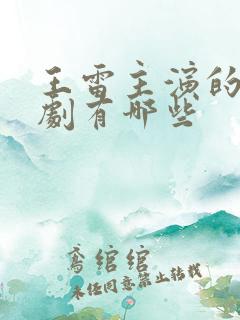 王雷主演的
劇有哪些
鸢绾绾
未经同意禁止转载